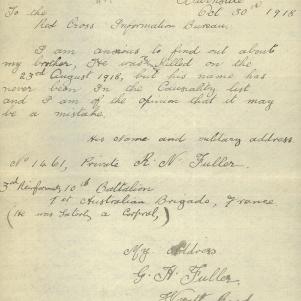 Oct 30th 1918
To the
Red Cross Information Bureau.
I am anxious to find out about
my brother, He was killed on the
23rd August 1918, but his name has
never been in the Causality list
and I am of the opinion that it may
be a mistake.
His name and military address.
No 1461, Private R. N. Fuller.
3rd Reinforms, 10th Battalion
1st Australian Brigade, France
(He was lately a Corporal)
My address
G. H. Fuller.